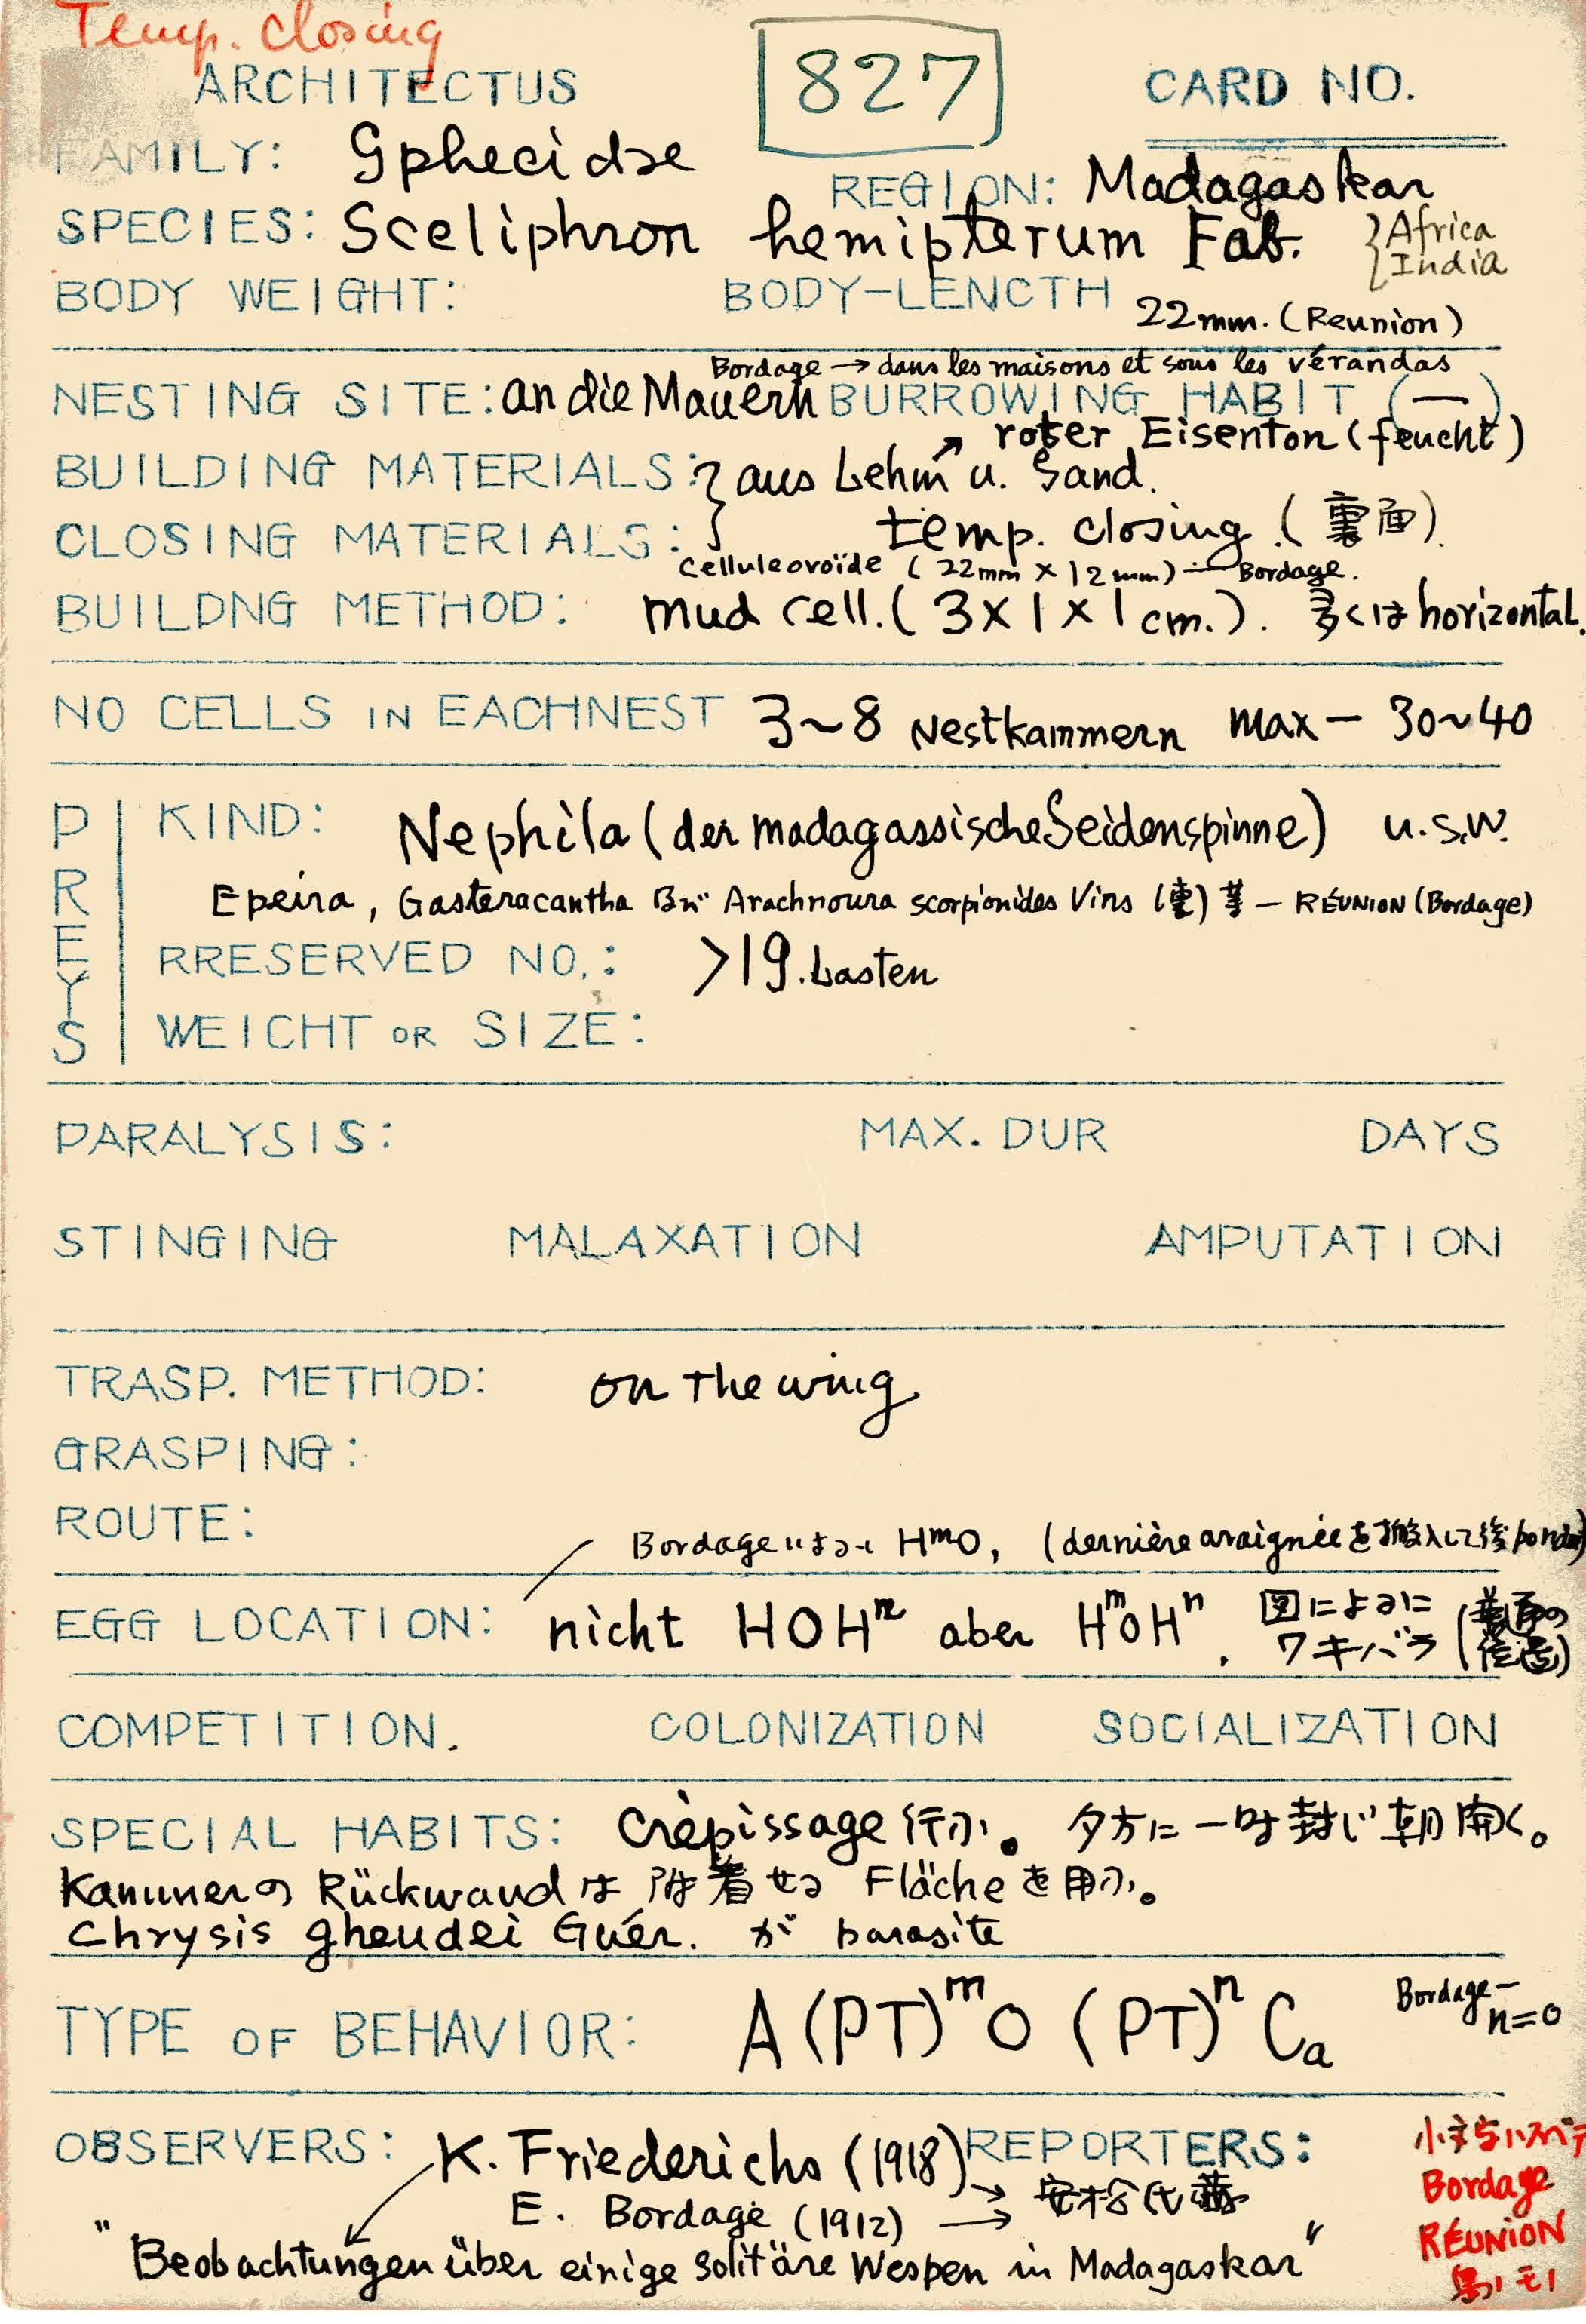 Temp. closing
ARCHITECTUS 827 CARD NO.
FAMILY: Sphecidae
REGION: Madagaskar
SPECIES: Sceliphron hemipterum Fab. Africa India
BODY WEIGHT: BODY-LENCTH 22mm. (Reunion)
Bordage → dans les maisons et sous les vérandas
NESTING SITE: an die Mauern BURROWING HABIT (—)
roter Eisenton (feucht)
BUILDING MATERIALS: aus Lehm u. Sand.
CLOSING MATERIALS: temp. closing. (裏面).
Celluleovoïde (22mm × 12mm) — Bordage.
BUILDNG METHOD: mud cell. (3×1×1cm.). 多くは horizontal.
NO CELLS IN EACHNEST 3~8 Nestkammern max — 30~40
PREYS
KIND: Nephila (der madagassische Seidenspinne) u.s.w.
Epeira, Gasteracantha 及び Arachnoura scorpionides Vins — RÉUNION (Bordage)
RRESERVED NO.: >19. Lasten
WEICHT OR SIZE:
PARALYSIS: MAX. DUR DAYS
STINGING MALAXATION AMPUTATION
TRASP. METHOD: on the wing
GRASPING:
ROUTE:
Bordage によると HᵐO, (dernière araignée を搬入して後 ponde)
EGG LOCATION: nicht HOHⁿ aber HᵐOHⁿ. 図によるに ワキバラ
COMPETITION. COLONIZATION SOCIALIZATION
SPECIAL HABITS: Crèpissage 行ふ。 夕方に一時封じ朝開く。
Kammerの Rückwandは附着せる Flächeを用ふ。
Chrysis gheudei Guér. が parasite
TYPE OF BEHAVIOR: A (PT)ᵐ O (PT)ⁿ Ca Bordage — n=0
OBSERVERS: K. Friederichs (1918) REPORTERS:
E. Bordage (1912) →
"Beobachtungen über einige solitäre Wespen in Madagaskar"
Bordage
RÉUNION